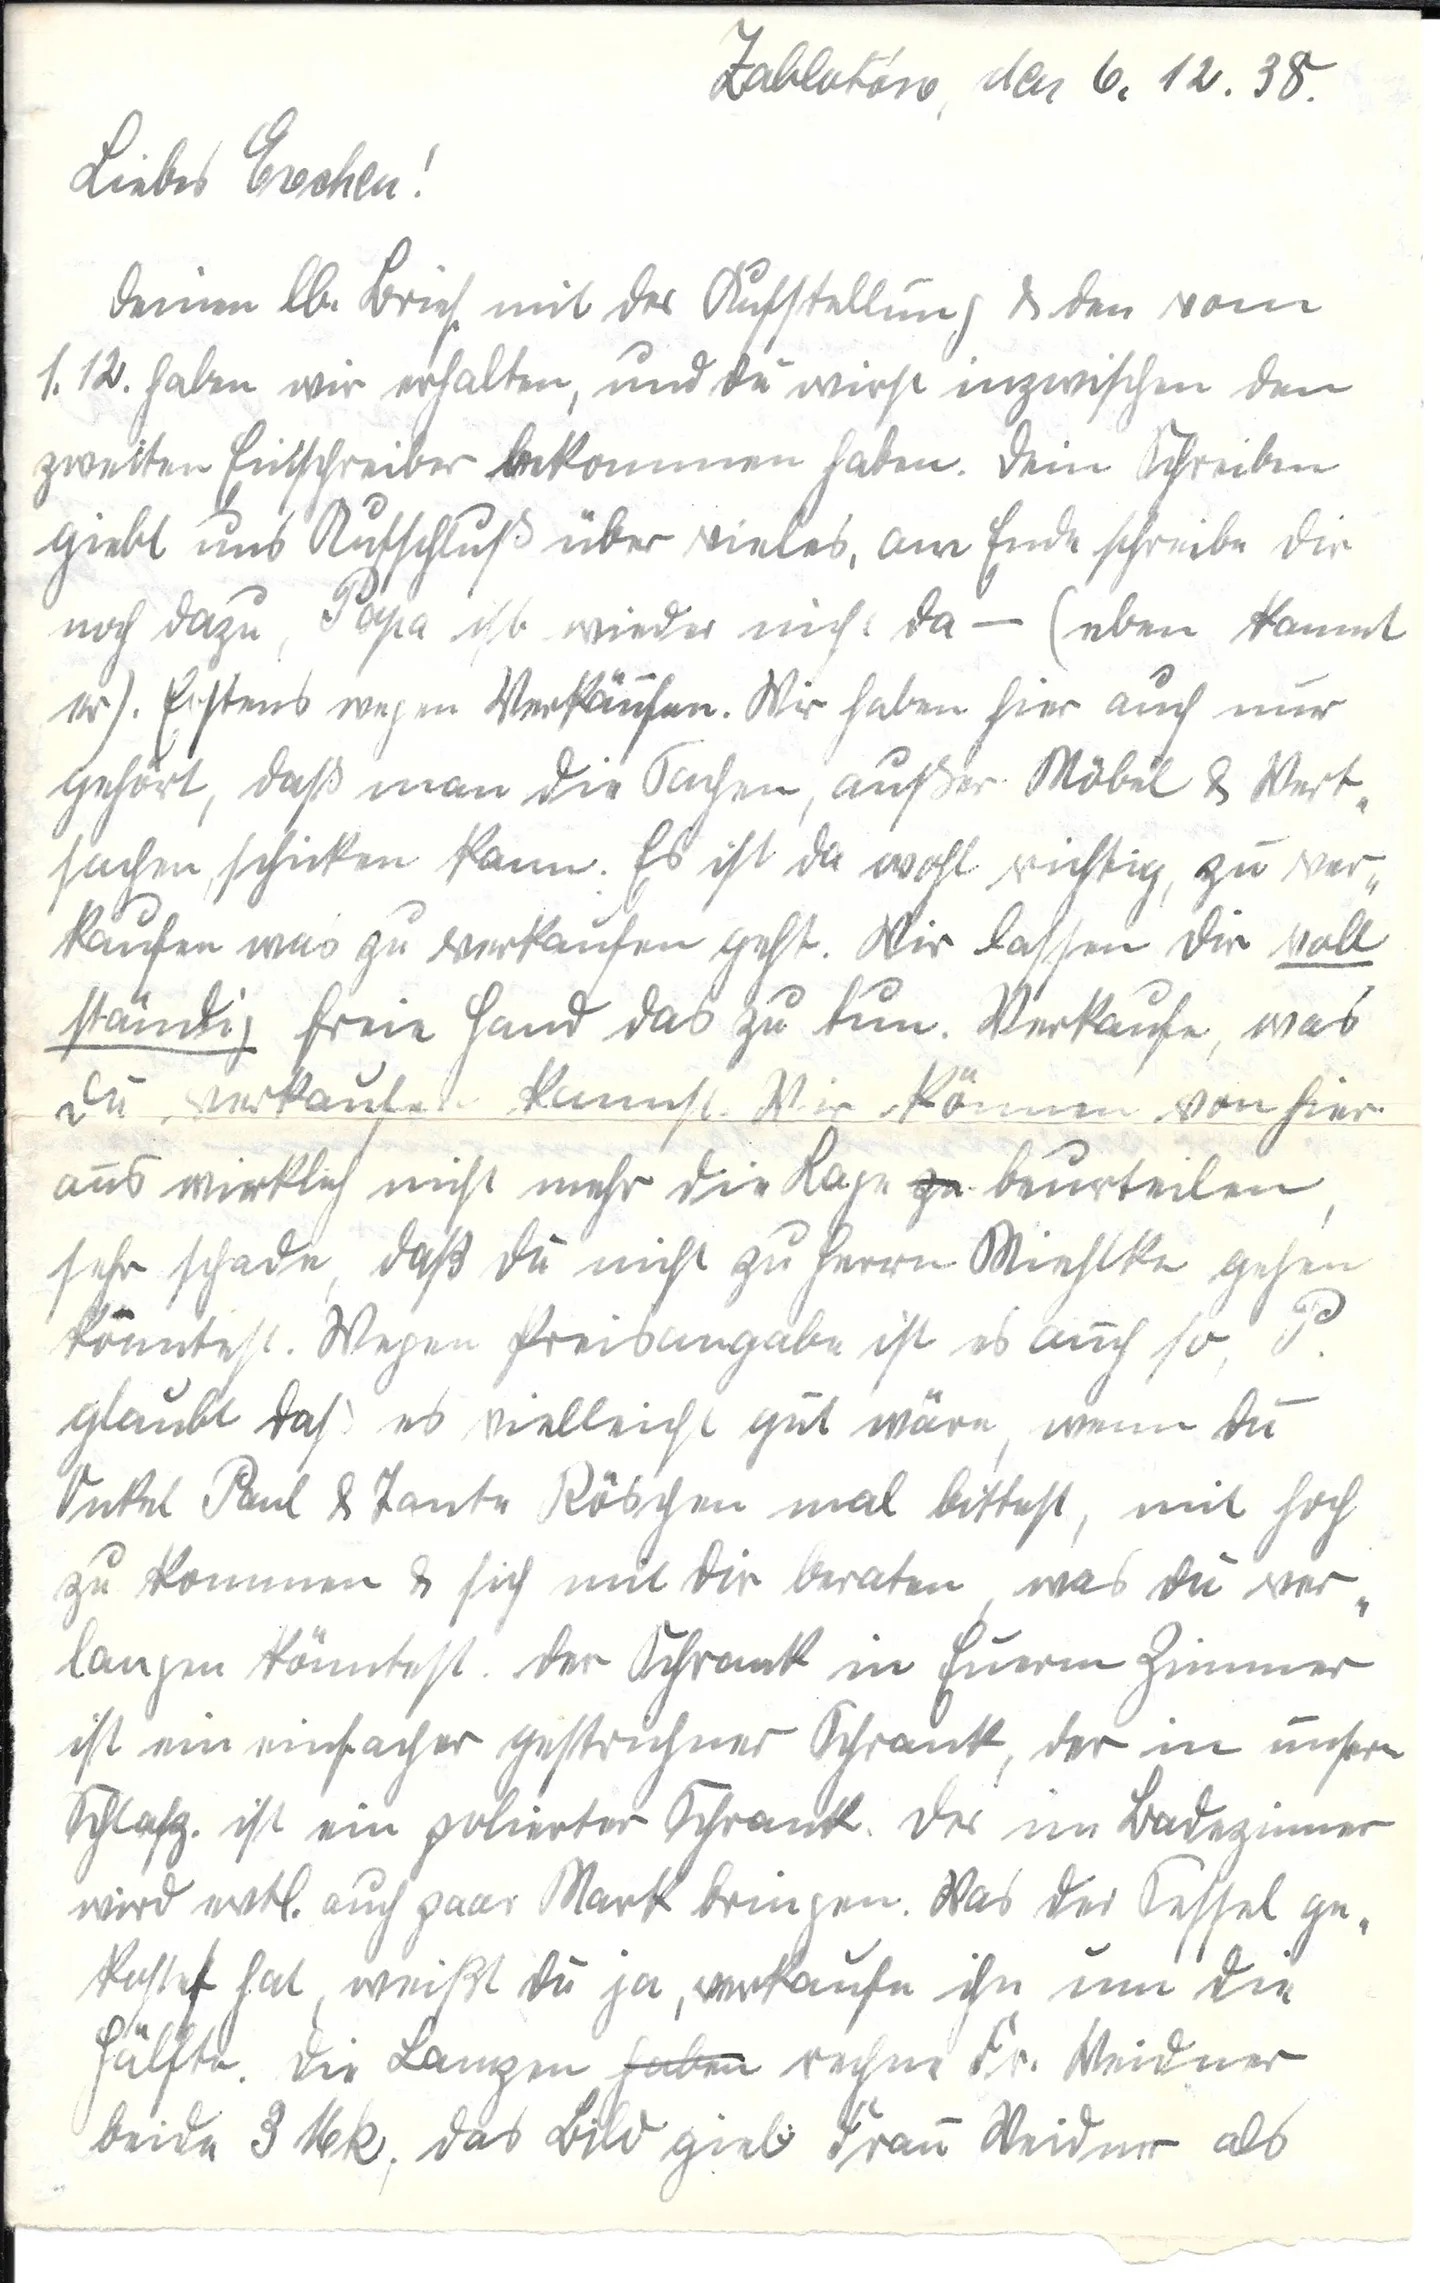 Zablotów, den 6. 12. 38.
Liebes Evchen!
Deinen lb. Brief mit der Aufstellung & den vom
1. 12. haben wir erhalten, und Du wirst inzwischen den
zweiten Einschreiber bekommen haben. Dein Schreiben
giebt uns Aufschluß über vieles, am Ende schreibe Dir
noch dazu, Papa ist wieder nicht da — (eben kommt
er). Erstens wegen Verkäufen. Wir haben hier auch nur
gehört, daß man die Sachen, außer Möbel & Wert-
sachen, schicken kann. Es ist da wohl richtig, zu ver-
kaufen was zu verkaufen geht. Wir lassen Dir voll
ständig freie Hand das zu tun. Verkaufe, was
Du verkaufen kannst. Wir können von hier
aus wirklich nicht mehr die Lage zu beurteilen,
sehr schade, daß Du nicht zu Herrn Miehlke gehen
könntest. Wegen Preisangabe ist es auch so, P.
glaubt daß es vielleicht gut wäre, wenn Du
Onkel Paul & Tante Röschen mal bittest, mit hoch
zu kommen & sich mit Dir beraten, was Du ver-
langen könntest. Der Schrank in Euerm Zimmer
ist ein einfacher gestrichner Schrank, der in unserm
Schlafz. ist ein polierter Schrank. Der im Badezimmer
wird evtl. auch paar Mark bringen. Was der Sessel ge-
kostet hat, weißt Du ja, verkaufe ihn um die
Hälfte. Die Lampen haben rechne Fr. Weidner
beide 3 Mk, das Bild gieb Frau Weidner als